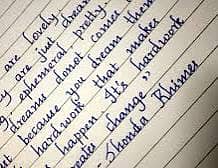 are lovely.
are just drea
ephemeral pretty.
dreams donot come
because you dream them
hardwork that makes
happen. It's hardwork
change"
- Shonda Rhimes